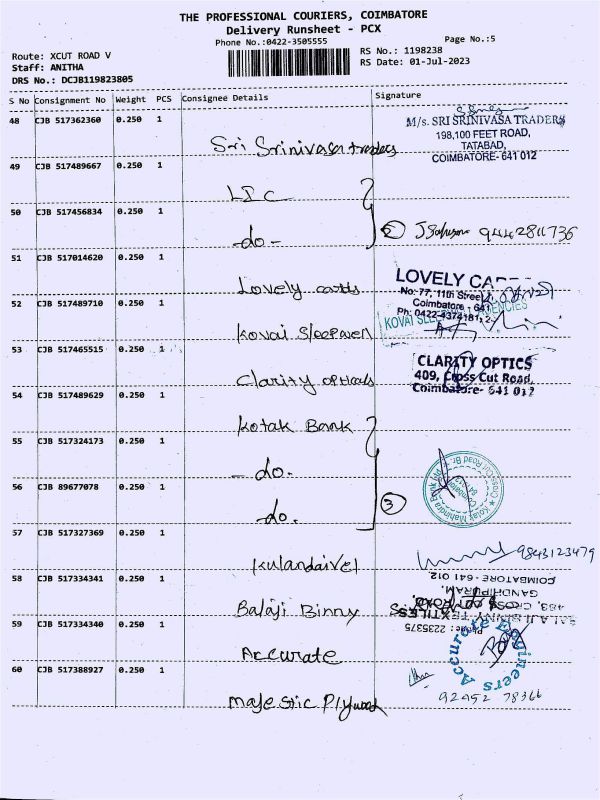 THE PROFESSIONAL COURIERS, COIMBATORE
Delivery Runsheet - PCX
Phone No.:0422-3505555
Page No.:5
Route: XCUT ROAD V
RS No.: 1198238
Staff: ANITHA
RS Date: 01-Jul-2023
DRS No.: DCJB119823805
S No Consignment No Weight PCS Consignee Details Signature
48 CJB 517362360 0.250 1
M/s. SRI SRINIVASA TRADERS
198,100 FEET ROAD,
TATABAD,
COIMBATORE- 641 012
Sri Srinivasa traders
49 CJB 517489667 0.250 1
LIC
50 CJB 517456834 0.250 1
2 9442811736
-do-
51 CJB 517014620 0.250 1
LOVELY
No: 77, 11th Street
Coimbatore - 641
Ph: 0422-4374181, 2
Lovely cards
52 CJB 517489710 0.250 1
KOVAI AGENCIES
Kovai Sleepwell
53 CJB 517465515 0.250 1
CLARITY OPTICS
409, Cross Cut Road,
Coimbatore- 641 012
Clarity opticals
54 CJB 517489629 0.250 1
Kotak Bank
55 CJB 517324173 0.250 1
- do.
Kotak Mahindra Bank
Cross Cut Road Br.
Coimbatore
56 CJB 89677078 0.250 1
3
do.
57 CJB 517327369 0.250 1
9843123479
Kulandaivel
58 CJB 517334341 0.250 1
BALAJI BINNY TEXTILES
483, CROSS CUT ROAD,
GANDHIPURAM,
COIMBATORE - 641 012.
Phone: 2235375
Balaji Binny
59 CJB 517334340 0.250 1
Accurate Engineers
Accurate
60 CJB 517388927 0.250 1
92452 78366
Majestic Plywood